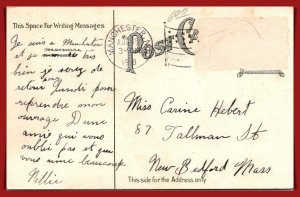 This Space For Writing Messages
MANCHESTER
Post
Je suis a Manchester
et je m'amuse
bien je serez de
retour Lundi pour
reprendre mon
ouvrage D'une
amie qui vous
oublie pas et qui
vous aime beaucoup
Nellie
Miss Carine Hebert
57 Tallman St
New Bedford Mass
This side for the Address only